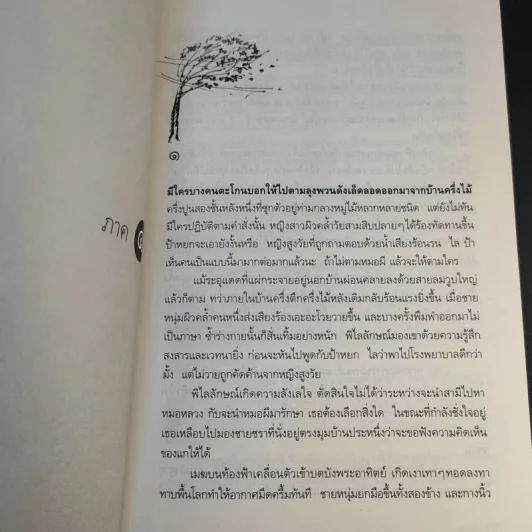 ภาค
๑
มีใครบางคนตะโกนบอกให้ไปตามลุงพวนดังเล็ดลอดออกมาจากบ้านครึ่งไม้
ครึ่งปูนสองชั้นหลังหนึ่งที่ซุกตัวอยู่ท่ามกลางหมู่ไม้หลากหลายชนิด แต่ยังไม่ทัน
มีใครปฏิบัติตามคำสั่งนั้น หญิงสาวผิวคล้ำวัยสามสิบปลายๆได้ร้องทัดทานขึ้น
ป้าหยกจะเอายังงั้นหรือ หญิงสูงวัยที่ถูกถามตอบด้วยน้ำเสียงร้อนรน ไล ป้า
เห็นคนเป็นแบบนี้มามากต่อมากแล้วนะ ถ้าไม่ตามหมอผี แล้วจะให้ตามใคร
แม้ระอุแดดที่แผ่กระจายอยู่นอกบ้านผ่อนคลายลงด้วยสายลมวูบใหญ่
แล้วก็ตาม ทว่าภายในบ้านครึ่งตึกครึ่งไม้หลังเดิมกลับร้อนแรงยิ่งขึ้น เมื่อชาย
หนุ่มผิวคล้ำคนหนึ่งส่งเสียงร้องเอะอะโวยวายขึ้น และบางครั้งพึมพำออกมาไม่
เป็นภาษา ซ้ำร่างกายนั้นก็สั่นเทิ้มอย่างหนัก พิไลลักษณ์มองเขาด้วยความรู้สึก
สงสารและเวทนายิ่ง ก่อนจะหันไปพูดกับป้าหยก ไลว่าพาไปโรงพยาบาลดีกว่า
มั้ง แต่ไม่วายถูกคัดค้านจากหญิงสูงวัย
พิไลลักษณ์เกิดความลังเลใจ ตัดสินใจไม่ได้ว่าระหว่างจะนำสามีไปหา
หมอหลวง กับจะนำหมอผีมารักษา เธอต้องเลือกสิ่งใด ในขณะที่กำลังชั่งใจอยู่
เธอเหลือบไปมองชายชราที่นั่งอยู่ตรงมุมบ้านประหนึ่งว่าจะขอฟังความคิดเห็น
ของแกให้ได้
เมฆบนท้องฟ้าเคลื่อนตัวเข้าบดบังพระอาทิตย์ เกิดเงาเทาๆทอดลงทา
ทาบพื้นโลกทำให้อากาศมืดครึ้มทันที ชายหนุ่มยกมือขึ้นทั้งสองข้าง และกางนิ้ว